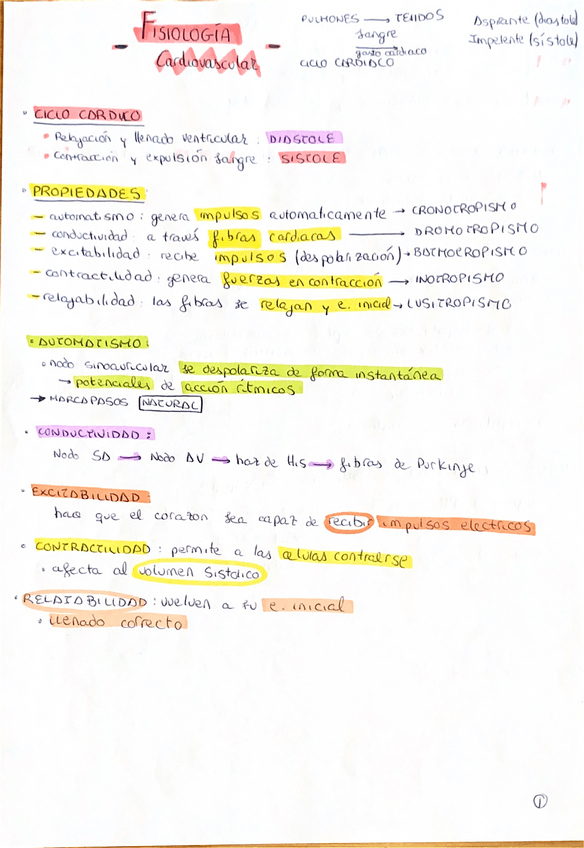 FISIOLOGÍA
Cardiovascular
PULMONES → TEJIDOS
Sangre
gasto cardiaco
CICLO CARDIACO
Aspirante (diastole)
Impelente (sístole)
• CICLO CARDIACO
• Relajación y llenado ventricular : DIASTOLE
• Contracción y expulsión sangre : SISTOLE
• PROPIEDADES:
- automatismo : genera impulsos automaticamente → CRONOTROPISMO
- conductividad : a través fibras cardiacas → DROMOTROPISMO
- excitabilidad : recibe impulsos (despolarización) → BATMOTROPISMO
- contractilidad : genera fuerzas en contracción → INOTROPISMO
- relajabilidad : las fibras se relajan y e. inicial → LUSITROPISMO
• AUTOMATISMO :
• nodo sinoauricular se despolariza de forma instantánea
→ potenciales de acción rítmicos
→ MARCAPASOS NATURAL
• CONDUCTIVIDAD :
Nodo SA → Nodo AV → haz de His → fibras de Purkinje
• EXCITABILIDAD :
hace que el corazon sea capaz de recibir impulsos electricos
• CONTRACTILIDAD : permite a las celulas contraerse
• afecta al volumen Sistolico
• RELAJABILIDAD : vuelven a su e. inicial
• llenado correcto
1